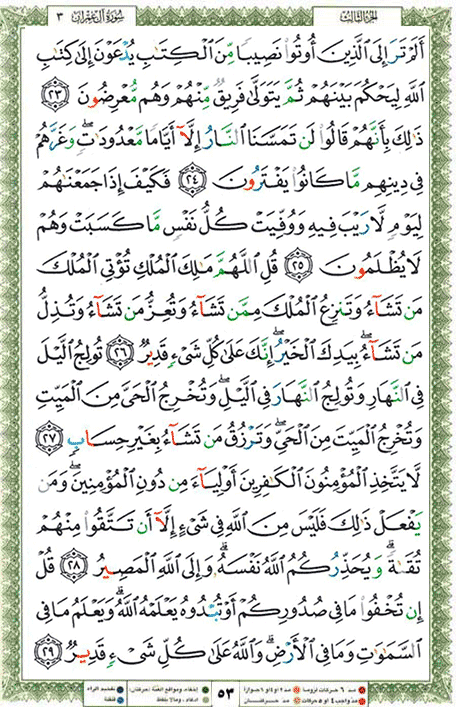 الجزء الثالث سورة آل عمران ٣
أَلَمْ تَرَ إِلَى ٱلَّذِينَ أُوتُوا۟ نَصِيبًا مِّنَ ٱلْكِتَٰبِ يُدْعَوْنَ إِلَىٰ كِتَٰبِ
ٱللَّهِ لِيَحْكُمَ بَيْنَهُمْ ثُمَّ يَتَوَلَّىٰ فَرِيقٌ مِّنْهُمْ وَهُم مُّعْرِضُونَ ٢٣
ذَٰلِكَ بِأَنَّهُمْ قَالُوا۟ لَن تَمَسَّنَا ٱلنَّارُ إِلَّآ أَيَّامًا مَّعْدُودَٰتٍ ۖ وَغَرَّهُمْ
فِى دِينِهِم مَّا كَانُوا۟ يَفْتَرُونَ ٢٤ فَكَيْفَ إِذَا جَمَعْنَٰهُمْ
لِيَوْمٍ لَّا رَيْبَ فِيهِ وَوُفِّيَتْ كُلُّ نَفْسٍ مَّا كَسَبَتْ وَهُمْ
لَا يُظْلَمُونَ ٢٥ قُلِ ٱللَّهُمَّ مَٰلِكَ ٱلْمُلْكِ تُؤْتِى ٱلْمُلْكَ
مَن تَشَآءُ وَتَنزِعُ ٱلْمُلْكَ مِمَّن تَشَآءُ وَتُعِزُّ مَن تَشَآءُ وَتُذِلُّ
مَن تَشَآءُ ۖ بِيَدِكَ ٱلْخَيْرُ ۖ إِنَّكَ عَلَىٰ كُلِّ شَىْءٍ قَدِيرٌ ٢٦ تُولِجُ ٱلَّيْلَ
فِى ٱلنَّهَارِ وَتُولِجُ ٱلنَّهَارَ فِى ٱلَّيْلِ ۖ وَتُخْرِجُ ٱلْحَىَّ مِنَ ٱلْمَيِّتِ
وَتُخْرِجُ ٱلْمَيِّتَ مِنَ ٱلْحَىِّ ۖ وَتَرْزُقُ مَن تَشَآءُ بِغَيْرِ حِسَابٍ ٢٧
لَّا يَتَّخِذِ ٱلْمُؤْمِنُونَ ٱلْكَٰفِرِينَ أَوْلِيَآءَ مِن دُونِ ٱلْمُؤْمِنِينَ ۖ وَمَن
يَفْعَلْ ذَٰلِكَ فَلَيْسَ مِنَ ٱللَّهِ فِى شَىْءٍ إِلَّآ أَن تَتَّقُوا۟ مِنْهُمْ
تُقَىٰةً ۗ وَيُحَذِّرُكُمُ ٱللَّهُ نَفْسَهُۥ ۗ وَإِلَى ٱللَّهِ ٱلْمَصِيرُ ٢٨ قُلْ
إِن تُخْفُوا۟ مَا فِى صُدُورِكُمْ أَوْ تُبْدُوهُ يَعْلَمْهُ ٱللَّهُ ۗ وَيَعْلَمُ مَا فِى
ٱلسَّمَٰوَٰتِ وَمَا فِى ٱلْأَرْضِ ۗ وَٱللَّهُ عَلَىٰ كُلِّ شَىْءٍ قَدِيرٌ ٢٩
٥٣
مد ٦ حركات لزوماً مد ٢ او ٤ او ٦ جوازاً إخفاء، ومواقع الغنّة (حركتان) تفخيم الراء
مد واجب ٤ او ٥ حركات مد حركتان ادغام، وما لا يلفظ قلقلة